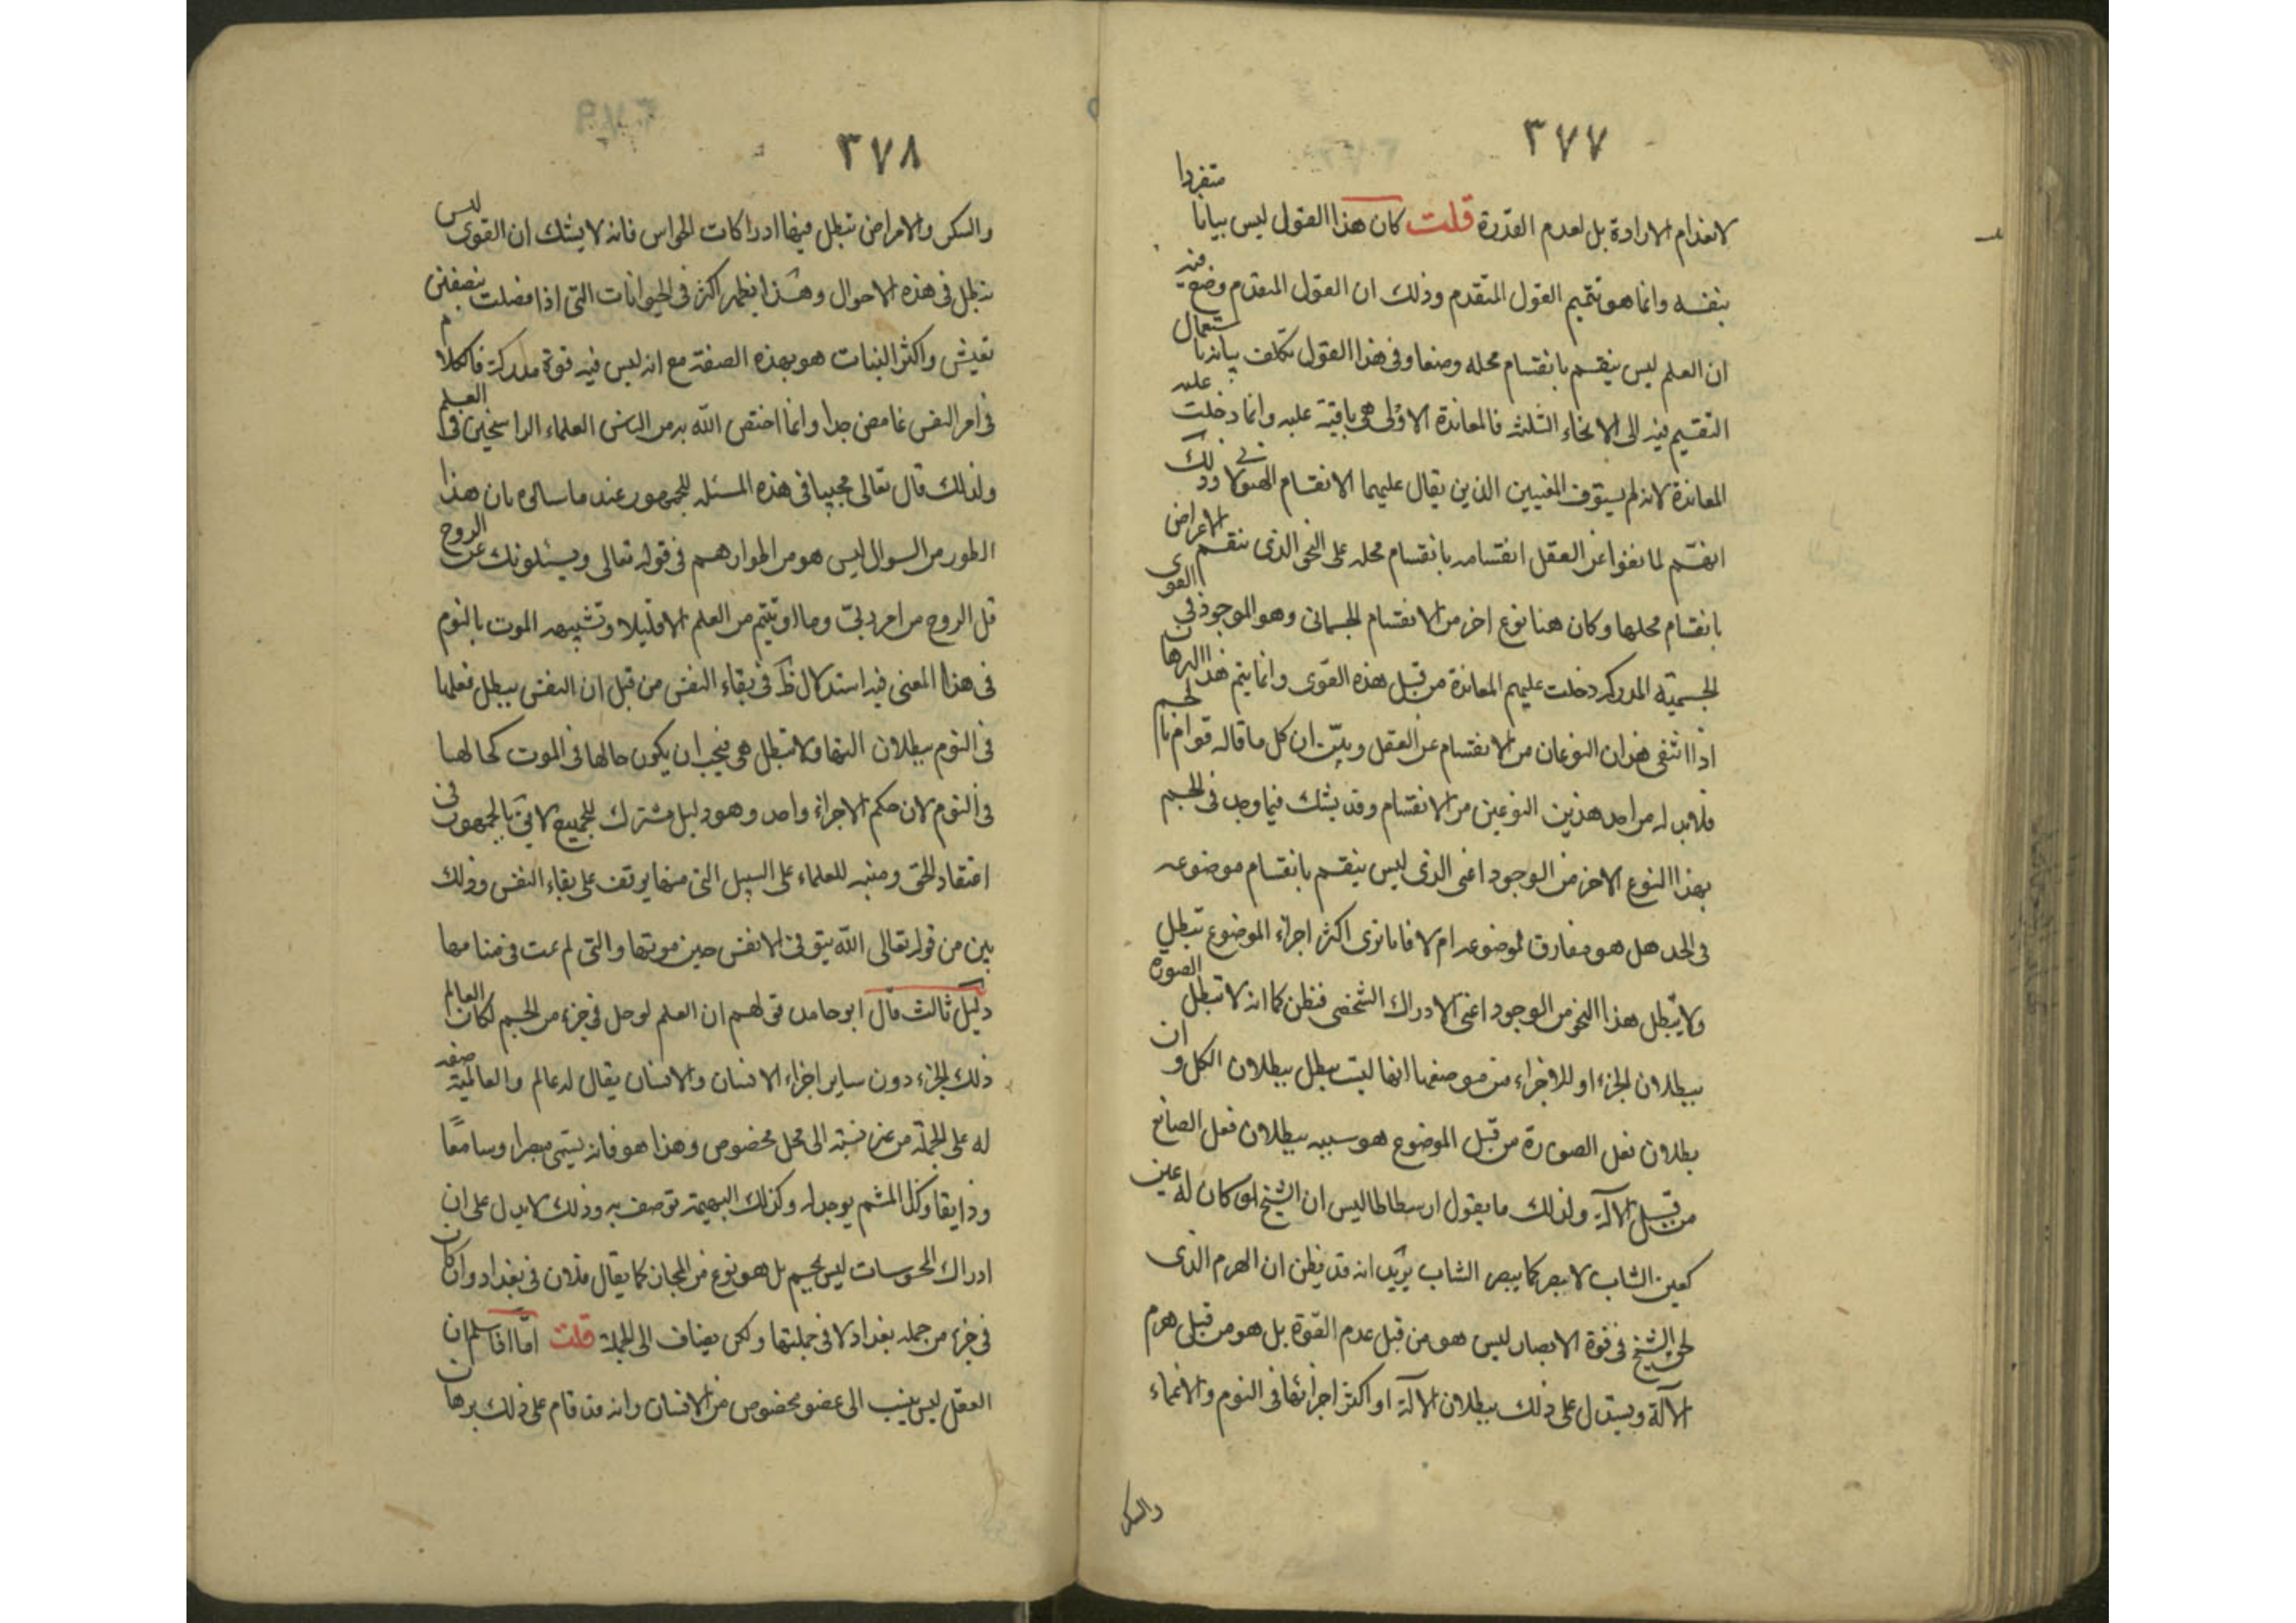 ٣٧٧
لانعدام الارادة بل لعدم القدرة قلت كان هذا القول ليس بيانا منفردا
بنفسه وانما هو تتميم القول المتقدم وذلك ان القول المتقدم وضع فيه
ان العلم ليس ينقسم بانقسام محله وضعا وفى هذا القول تكلف بيانه باستعمال
التقسيم فيه الى الانحاء الثلثه فالمعاندة الاولى هى باقية عليه وانما دخلت عليه
المعاندة لانه لم يستوف المعنيين الذين يقال عليهما الانقسام الهيولانى وذلك
انهم لما نفوا عن العقل انقسامه بانقسام محله على النحو الذى تنقسم الاعراض
بانقسام محلها وكان هنا نوع اخر من الانقسام الجسمانى وهو الموجود فى القوى
الجسمية المدركه دخلت عليهم المعاندة من قبل هذه القوى وانما يتم هذا البرهان
اذا انتفى هذان النوعان من الانقسام عن العقل وبين ان كل ما قاله قوام بالجسم
فلابد له من احد هذين النوعين من الانقسام وقد يشك فيما وجد فى الجسم
بهذا النوع الاخر من الوجود اعنى الذى ليس ينقسم بانقسام موضوعه
فى الحد هل هو مفارق لموضوعه ام لا فانا نرى اكثر اجزاء الموضوع تبطل
ولا يبطل هذا النحو من الوجود اعنى الادراك الشخصى فنظن كما انه لا تبطل الصورة
ببطلان الجزء او للاجزاء من موضعها انها ليست تبطل ببطلان الكل وان
بطلان فعل الصورة من قبل الموضوع هو شبيه ببطلان فعل الصانع
من قبل الآلة ولذلك ما يقول ارسطاطاليس ان الشيخ لو كان له عين
كعين الشاب لابصر كما يبصر الشاب يريد انه قد يظن ان الهرم الذى
لحق الشيخ فى قوة الابصار ليس هو من قبل عدم القوة بل هو من قبل هرم
الآلة ويستدل على ذلك ببطلان الآلة او اكثر اجزائها فى النوم والاغماء
والسكر
٣٧٨
والسكر والامراض تبطل فيها ادراكات الحواس فانه لا يشك ان القوى ليس
تبطل فى هذه الاحوال وهذا يظهر اكثر فى الحيوانات التى اذا فصلت بنصفين
تعيش واكثر النبات هو بهذه الصفة مع انه ليس فيه قوة مدركة فالكلام
فى امر النفس غامض جدا وانما اختص الله به من الناس العلماء الراسخين فى العلم
ولذلك قال تعالى مجيبا فى هذه المسئله للجمهور عند ما سالوه بان هذا
الطور من السوال ليس هو من اطوارهم فى قوله تعالى ويسئلونك عن الروح
قل الروح من امر ربى وما اوتيتم من العلم الا قليلا وتشبيهه الموت بالنوم
فى هذا المعنى فيه استدلال ظ فى بقاء النفس من قبل ان النفس يبطل فعلها
فى النوم ببطلان التها ولا تبطل هى فيجب ان يكون حالها فى الموت كحالها
فى النوم لان حكم الاجزاء واحد وهو دليل مشترك للجميع لائق بالجمهور فى
اعتقاد الحق ومنبه للعلماء على السبيل التى منها يوقف على بقاء النفس وذلك
بين من قوله تعالى الله يتوفى الانفس حين موتها والتى لم تمت فى منامها
دليل ثالث قال ابو حامد قولهم ان العلم لو حل فى جزء من الجسم لكان العالم
ذلك الجزء دون ساير اجزاء الانسان والانسان يقال له عالم والعالمية صفه
له على الجملة من غير نسبته الى محل مخصوص وهذا هو فانه يسمى مبصرا وسامعا
وذايقا وكذا المشم يوجد له وكذلك البهيمة توصف به وذلك لا يدل على ان
ادراك المحسوسات ليس بجسم بل هو نوع من المجاز كما يقال فلان فى بغداد وان كان
فى جزء من جمله بغداد لا فى جملتها ولكن يضاف الى الجملة قلت اما اذا سلم ان
العقل ليس ينسب الى عضو مخصوص من الانسان وانه قد قام على ذلك برهان